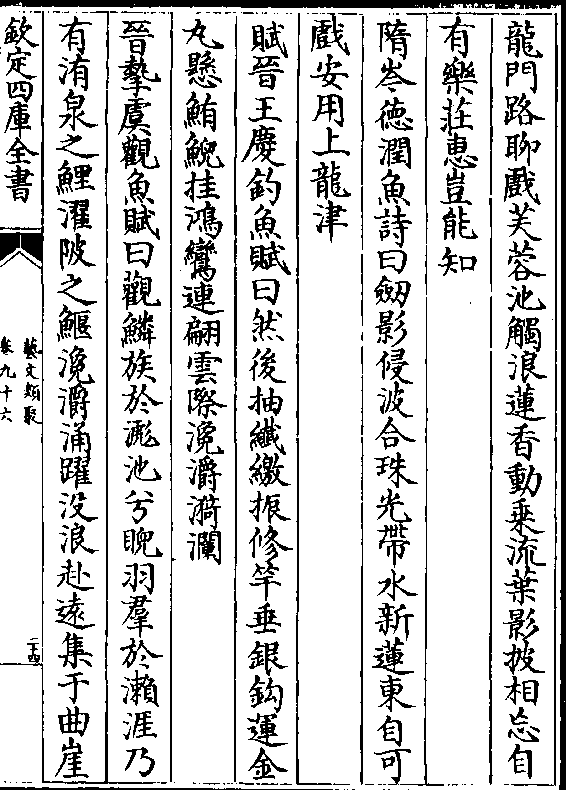 龍門路聊戲芙蓉池觸浪蓮香動乗流葉影披相忘自
有樂莊惠豈能知
隋岑徳潤魚詩曰劒影侵波合珠光帶水新蓮東自可
戲安用上龍津
賦晉王慶釣魚賦曰然後抽纖繳振修竿垂銀鈎運金
丸懸鮪鯢挂鴻鸞連翩雲際㴒灂漪瀾
晉摯虞觀魚賦曰觀鱗族於彪池兮睨羽羣於瀨涯乃
有洧泉之鯉濯陂之鰋㴒灂涌躍没浪赴逺集于曲崖
欽定四庫全書
藝文類聚
卷九十六
二十四